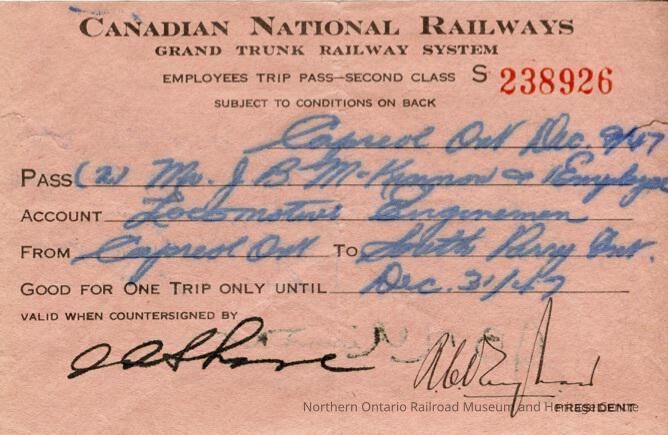 CANADIAN NATIONAL RAILWAYS
GRAND TRUNK RAILWAY SYSTEM
EMPLOYEES TRIP PASS—SECOND CLASS S 238926
SUBJECT TO CONDITIONS ON BACK
Capreol Ont Dec. 9/47
PASS (2) Mr. J B & Employee
ACCOUNT Locomotive Enginemen
FROM Capreol Ont TO South Parry Ont.
GOOD FOR ONE TRIP ONLY UNTIL Dec. 31/47
VALID WHEN COUNTERSIGNED BY
PRESIDENT
Northern Ontario Railroad Museum and Heritage Centre